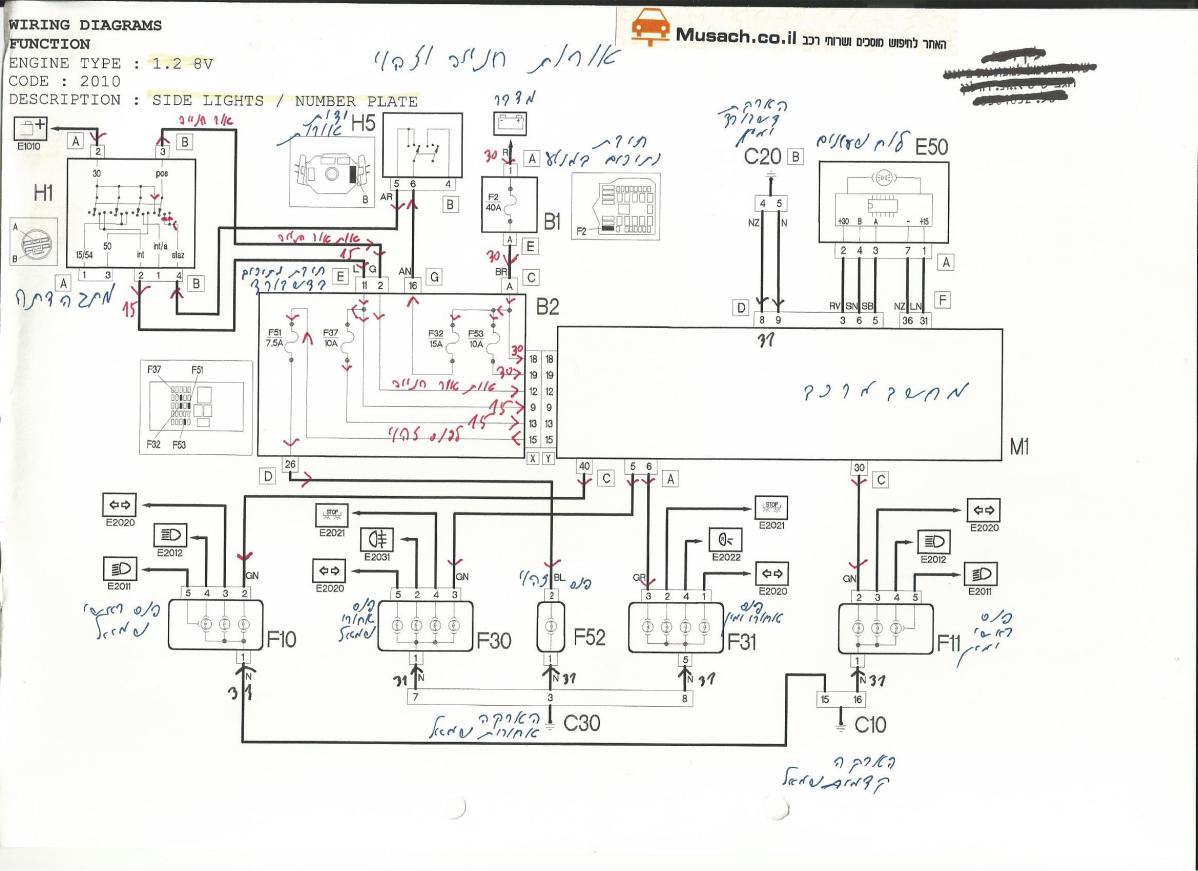 WIRING DIAGRAMS
FUNCTION
ENGINE TYPE : 1.2 8V
CODE : 2010
DESCRIPTION : SIDE LIGHTS / NUMBER PLATE
Musach.co.il האתר לחיפוש מוסכים ושרותי רכב
אורות חנייה וזהוי
E1010
A 2
3 B
אור חנייה
H1
30 pos
50
15/54 int int/a staz
A B
A 1 3 2 1 4 B
מתג הדתה
15
ידית אורות
H5
B
5 6 4
AR B
AN
16 G
מצבר
30 R A
1
F2
40A
B1
A E
30
BR C
A
תיבת
נתיכים במנוע
F2
הארקה
דשבורד
ימין
C20 B
4 5
NZ N
D 8 9
31
לוח שעונים
E50
+30 B A - +15
2 4 3 7 1 A
RV SN SB NZ LN F
3 6 5 36 31
אות אור חנייה
15
L G
E 11 2
תיבת נתיכים
בדשבורד
B2
F51
7,5A
F37
10A
F32
15A
F53
10A
30
30
אות אור חנייה
15
15
לפנס זהוי
18 18
19 19
12 12
9 9
13 13
15 15
X Y
מחשב מרכב
M1
F37 F51
F32 F53
D 26
40 C
5 6 A
30 C
E2020
E2012
E2011
GN
5 4 3 2
F10
1
N
31
פנס ראשי
שמאל
E2021
E2031
E2020
GN
5 2 4 3
F30
1
N
31
פנס
אחורי
שמאל
פנס זהוי
BL
2
F52
1
N
31
STOP
E2021
E2022
E2020
GR
3 2 4 1
F31
5
N
31
פנס
אחורי ימין
E2020
E2012
E2011
GN
2 3 4 5
F11
1
N
31
פנס
ראשי
ימין
7 3 8
C30
הארקה
אחורית שמאל
15 16
C10
הארקה
קדמית שמאל